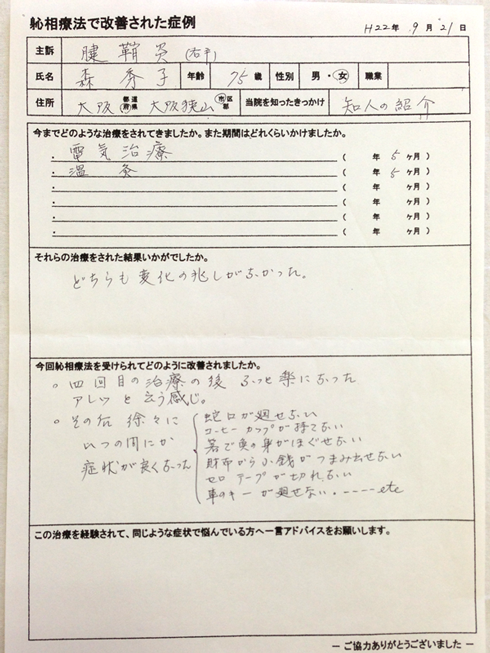 恥相療法で改善された症例
H22年 9月 21日
主訴 腱鞘炎(右手)
氏名 森 秀子 年齢 75歳 性別 男・女 職業
住所 大阪 都道府県 大阪狭山 市区郡 当院を知ったきっかけ 知人の紹介
今までどのような治療をされてきましたか。また期間はどれくらいかけましたか。
・電気治療 ( 年 5ヶ月 )
・温灸 ( 年 5ヶ月 )
・ ( 年 ヶ月 )
・ ( 年 ヶ月 )
・ ( 年 ヶ月 )
・ ( 年 ヶ月 )
それらの治療をされた結果いかがでしたか。
どちらも変化の兆しがなかった。
今回恥相療法を受けられてどのように改善されましたか。
○ 四回目の治療の後 ふっと楽になった
アレッと云う感じ。
○ その后 徐々に
いつの間にか
症状が良くなった
蛇口が廻せない
コーヒーカップが持てない
箸で魚の身がほぐせない
財布から小銭がつまみ出せない
セロテープが切れない
車のキーが廻せない.-----etc
この治療を経験されて、同じような症状で悩んでいる方へ一言アドバイスをお願いします。
− ご協力ありがとうございました −